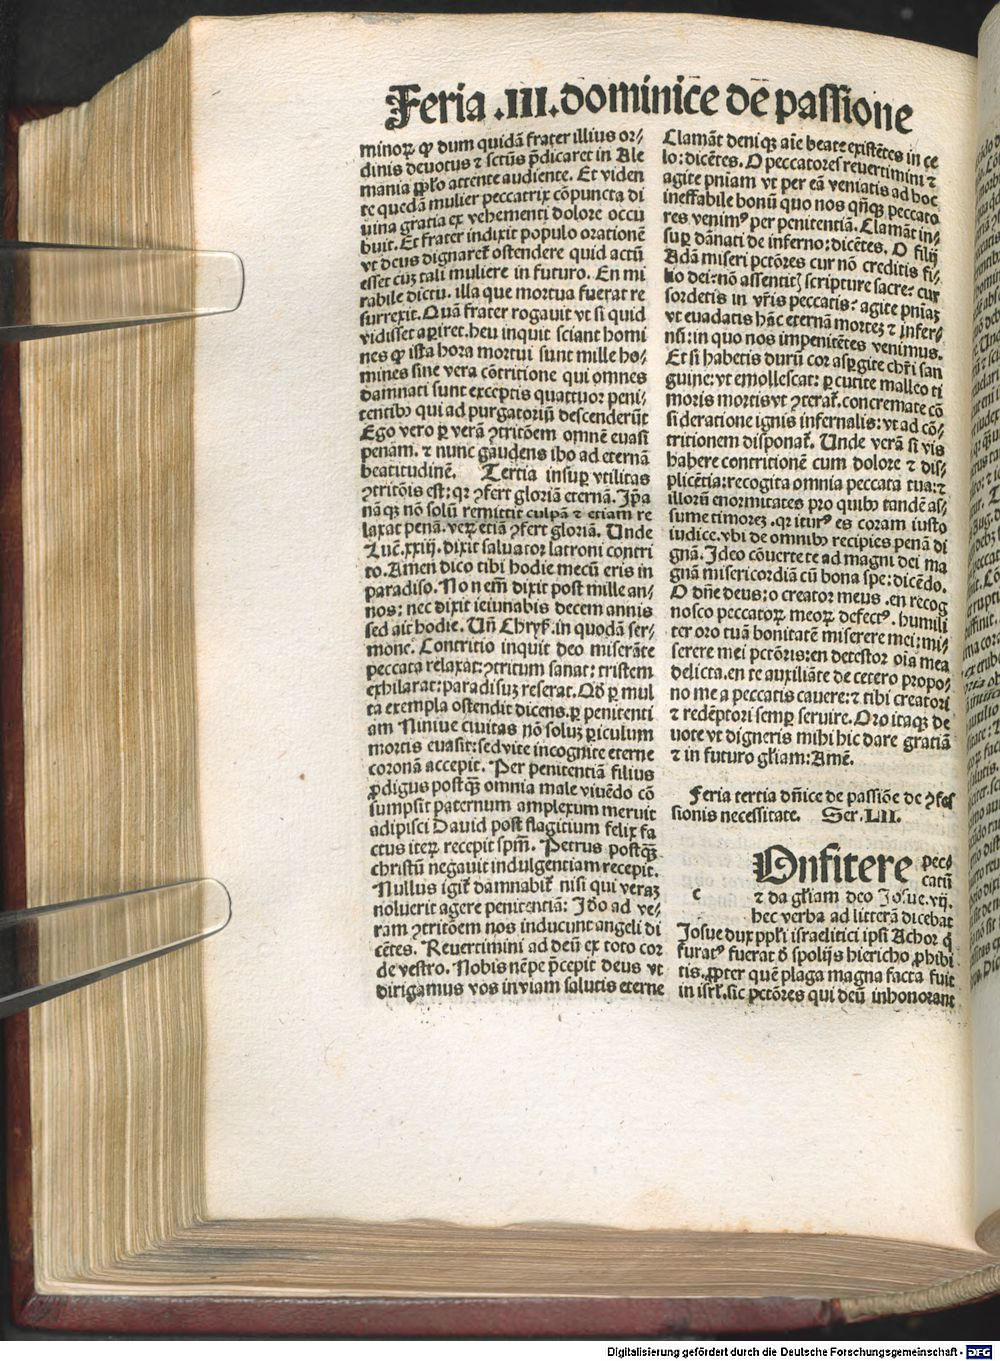 Feria .III. dominice de passione
minoꝝ ꝙ dum quidā frater illius or⸗
dinis deuotus ⁊ sctūs p̄dicaret in Ale
mania ꝓplo attente audiente. Et viden
te quedā mulier peccatrix cōpuncta di
uina gratia ex vehementi dolore occu
buit. Et frater indixit populo orationē
vt deus dignaret̄ ostendere quid actū
esset cuꝫ tali muliere in futuro. En mi
rabile dictu. illa que mortua fuerat re
surrexit. Quā frater rogauit vt si quid
vidisset aꝑiret. heu inquit sciant homi
nes ꝙ ista hora mortui sunt mille ho⸗
mines sine vera cōtritione qui omnes
damnati sunt exceptis quattuor peni⸗
tentibꝰ qui ad purgatoriū descenderūt
Ego vero ꝑ verā ꝯtritōem omnē euasi
penam. ⁊ nunc gaudens ibo ad eternā
beatitudinē. Tertia insuꝑ vtilitas
ꝯtritōis est: qꝛ ꝯfert gloriā eternā. Ip̄a
nāqꝫ nō solū remittit culpā ⁊ etiam re
laxat penā. veꝝ etiā ꝯfert gloriā. Unde
Luc̄. xxiij. dixit saluator latroni contri
to. Amen dico tibi hodie mecū eris in
paradiso. No n em̄ dixit post mille an⸗
nos: nec dixit ieiunabis decem annis
sed ait hodie. Uñ Chrys. in quodā ser⸗
mone. Contritio inquit deo miserāte
peccata relaxat: ꝯtritum sanat: tristem
exhilarat: paradisuꝫ reserat. Qd̓ ꝑ mul
ta exempla ostendit dicens. ꝑ penitenti
am Niniue ciuitas nō soluꝫ ꝑiculum
mortis euasit: sed vite incognite eterne
coronā accepit. Per penitentiā filius
ꝓdigus postqꝫ omnia male viuēdo cō
sumpsit paternum amplexum meruit
adipisci Dauid post flagitium felix fa
ctus iteꝝ recepit spm̄. Petrus postqꝫ
christū negauit indulgentiam recepit.
Nullus igit̄ damnabit̄ nisi qui veraꝫ
noluerit agere penitentiā: Ido ad ve⸗
ram ꝯtritōem nos inducunt angeli di
cētes. Reuertimini ad deū ex toto cor
de vestro. Nobis nēpe p̄cepit deus vt
dirigamus vos in viam salutis eterne
Clamāt deniqꝫ aīe beate existētes in ce
lo: dicētes. O peccatores reuertimini ⁊
agite pn̄iam vt per eā veniatis ad hoc
ineffabile bonū quo nos qn̄qꝫ peccato
res venimꝰ per penitentiā. Clamāt in⸗
suꝑ dānati de inferno: dicētes. O filij
Adā miseri pctōres cur nō creditis fi⸗
lio dei: nō assentitꝭ scripture sacre: cur
sordetis in vr̄is peccatis: agite pn̄iaꝫ
vt euadatis hāc eternā morteꝫ ⁊ infer⸗
nū: in quo nos impenitētes venimus.
Et si habetis durū cor aspgite chr̄i san
guine: vt emollescat: ꝑcutite malleo ti
moris mortis vt ꝯterat̄. concremate cō
sideratione ignis infernalis: vt ad cō⸗
tritionem disponat̄. Unde verā si vis
habere contritionē cum dolore ⁊ dis⸗
plicētia: recogita omnia peccata tua: ⁊
illorū enormitates pro quibꝰ tandē as⸗
sume timoreꝫ. qꝛ iturꝰ es coram iusto
iudice. vbi de omnibꝰ recipies penā di
gnā. Ideo cōuerte te ad magni dei ma
gnā misericordiā cū bona spe: dicēdo.
O dn̄e deus: o creator meus. en recog
nosco peccatoꝝ meoꝝ defectꝰ. humili
ter oro tuā bonitatē miserere mei: mi⸗
serere mei pctōris: en detestor oīa mea
delicta. en te auxiliāte de cetero propo⸗
no me a peccatis cauere: ⁊ tibi creatori
⁊ redēptori semꝑ seruire. Oro itaqꝫ de
uote vt digneris mihi hic dare gratiā
⁊ in futuro gl̄iam: Amē.
Feria tertia dn̄ice de passiōe de ꝯfes
sionis necessitate. Ser. LII.
c Onfitere pec⸗
catū
⁊ da gl̄iam deo Josue. vij.
hec verba ad litterā dicebat
Josue dux pp̄li israelitici ipsi Achor ꝗ
furatꝰ fuerat d̓ spolijs hiericho ꝓhibi
tis. ꝓpter quē plaga magna facta fuit
in isr̄l. sic pctōres qui deū inhonorant
Digitalisierung gefördert durch die Deutsche Forschungsgemeinschaft - DFG